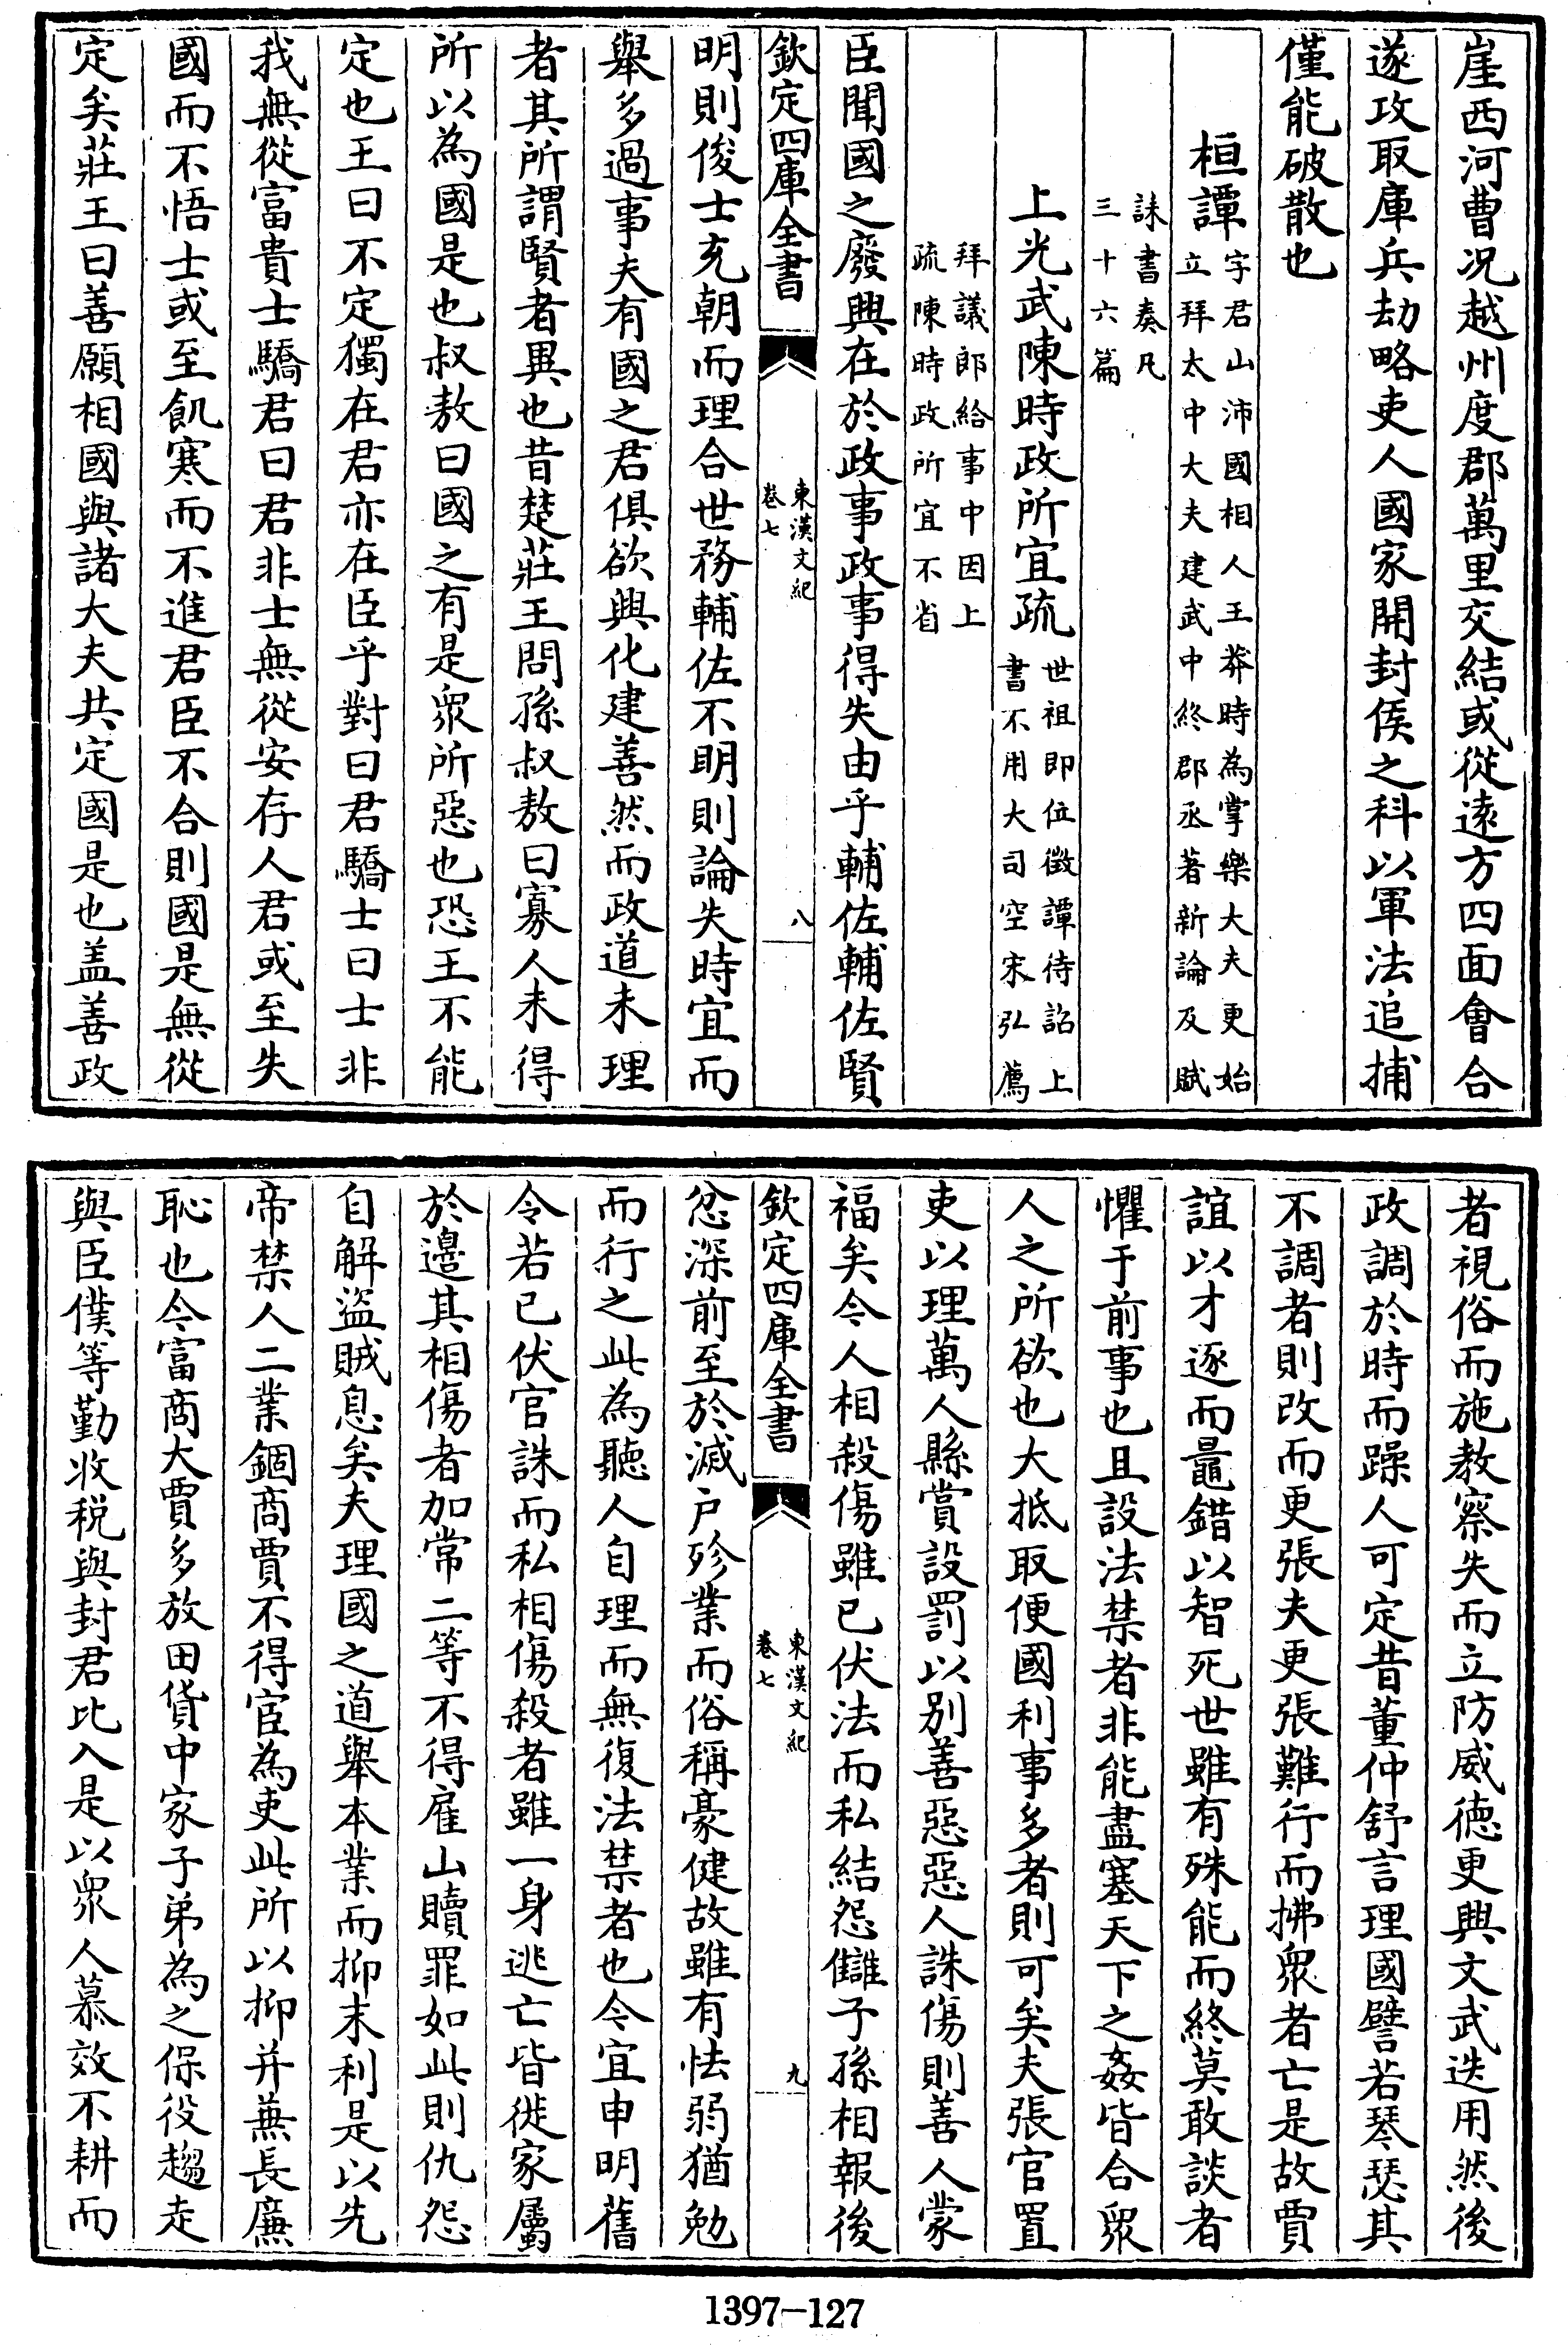 崖西河曹况越州度郡萬里交結或從遠方四面會合
遂攻取庫兵劫略吏人國家開封侯之科以軍法追捕
僅能破散也
桓譚字君山沛國相人王莽時為掌樂大夫更始
立拜太中大夫建武中終郡丞著新論及賦
誄書奏凡
三十六篇
上光武陳時政所宜疏世祖即位徵譚待詔上
書不用大司空宋弘薦
拜議郎給事中因上
疏陳時政所宜不省
臣聞國之廢興在於政事政事得失由乎輔佐輔佐賢
欽定四庫全書
東漢文紀
卷七
八
明則俊士充朝而理合世務輔佐不明則論失時宜而
舉多過事夫有國之君俱欲興化建善然而政道未理
者其所謂賢者異也昔楚莊王問孫叔敖曰寡人未得
所以為國是也叔敖曰國之有是衆所惡也恐王不能
定也王曰不定獨在君亦在臣乎對曰君驕士曰士非
我無從富貴士驕君曰君非士無從安存人君或至失
國而不悟士或至飢寒而不進君臣不合則國是無從
定矣莊王曰善願相國與諸大夫共定國是也盖善政
者視俗而施教察失而立防威德更興文武迭用然後
政調於時而躁人可定昔董仲舒言理國譬若琴瑟其
不調者則改而更張夫更張難行而拂衆者亡是故賈
誼以才逐而鼂錯以智死世雖有殊能而終莫敢談者
懼于前事也且設法禁者非能盡塞天下之姦皆合衆
人之所欲也大抵取便國利事多者則可矣夫張官置
吏以理萬人縣賞設罰以别善惡惡人誅傷則善人蒙
福矣今人相殺傷雖已伏法而私結怨讎子孫相報後
欽定四庫全書
東漢文紀
卷七
九
忿深前至於滅户殄業而俗稱豪健故雖有怯弱猶勉
而行之此為聽人自理而無復法禁者也今宜申明舊
令若已伏官誅而私相傷殺者雖一身逃亡皆徙家屬
於邊其相傷者加常二等不得雇山贖罪如此則仇怨
自解盜賊息矣夫理國之道舉本業而抑末利是以先
帝禁人二業錮商賈不得宦為吏此所以抑并兼長廉
恥也今富商大賈多放田貨中家子弟為之保役趨走
與臣僕等勤收税與封君比入是以衆人慕效不耕而
1397-127